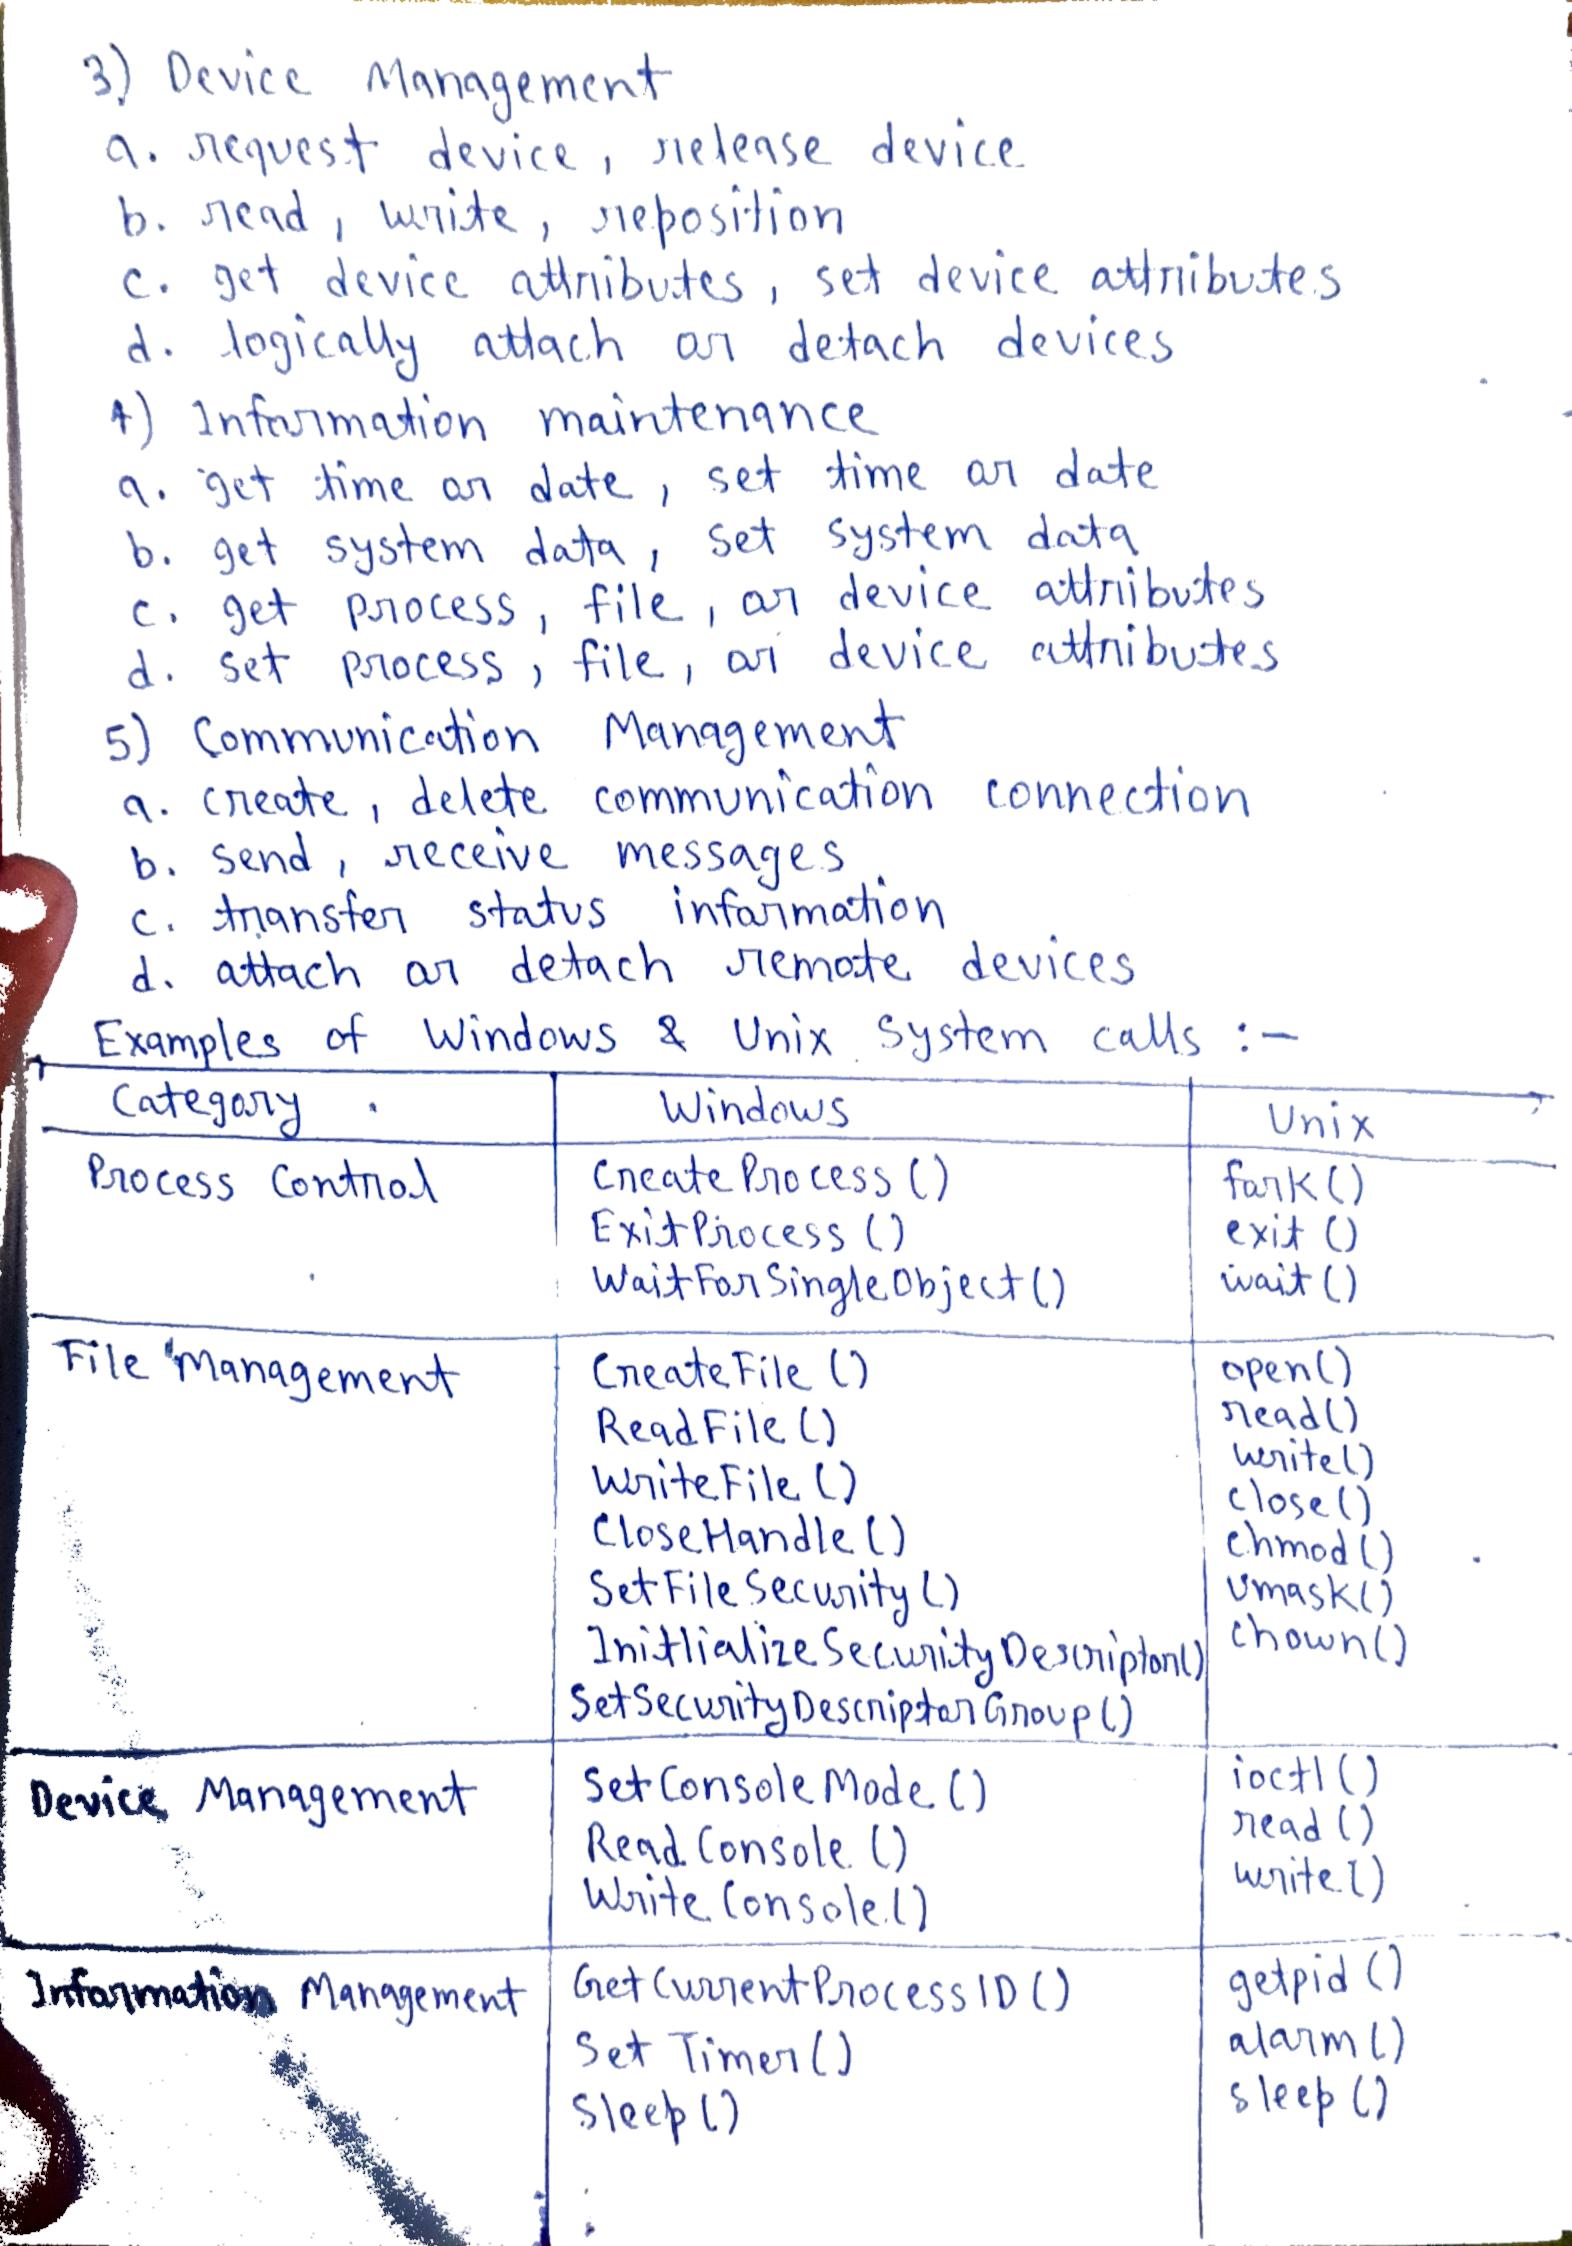 3) Device Management
a. request device, release device
b. read, write, reposition
c. get device attributes, set device attributes
d. logically attach or detach devices
4) Information maintenance
a. get time or date, set time or date
b. get system data, set system data
c. get process, file, or device attributes
d. set process, file, or device attributes
5) Communication Management
a. create, delete communication connection
b. send, receive messages
c. transfer status information
d. attach or detach remote devices
Examples of Windows & Unix System calls :-
Category Windows Unix
Process Control CreateProcess() fork()
ExitProcess() exit()
WaitForSingleObject() wait()
File Management CreateFile() open()
ReadFile() read()
WriteFile() write()
CloseHandle() close()
SetFileSecurity() chmod()
InitlializeSecurityDescriptor() umask()
SetSecurityDescriptorGroup() chown()
Device Management SetConsoleMode() ioctl()
ReadConsole() read()
WriteConsole() write()
Information Management GetCurrentProcessID() getpid()
Set Timer() alarm()
Sleep() sleep()